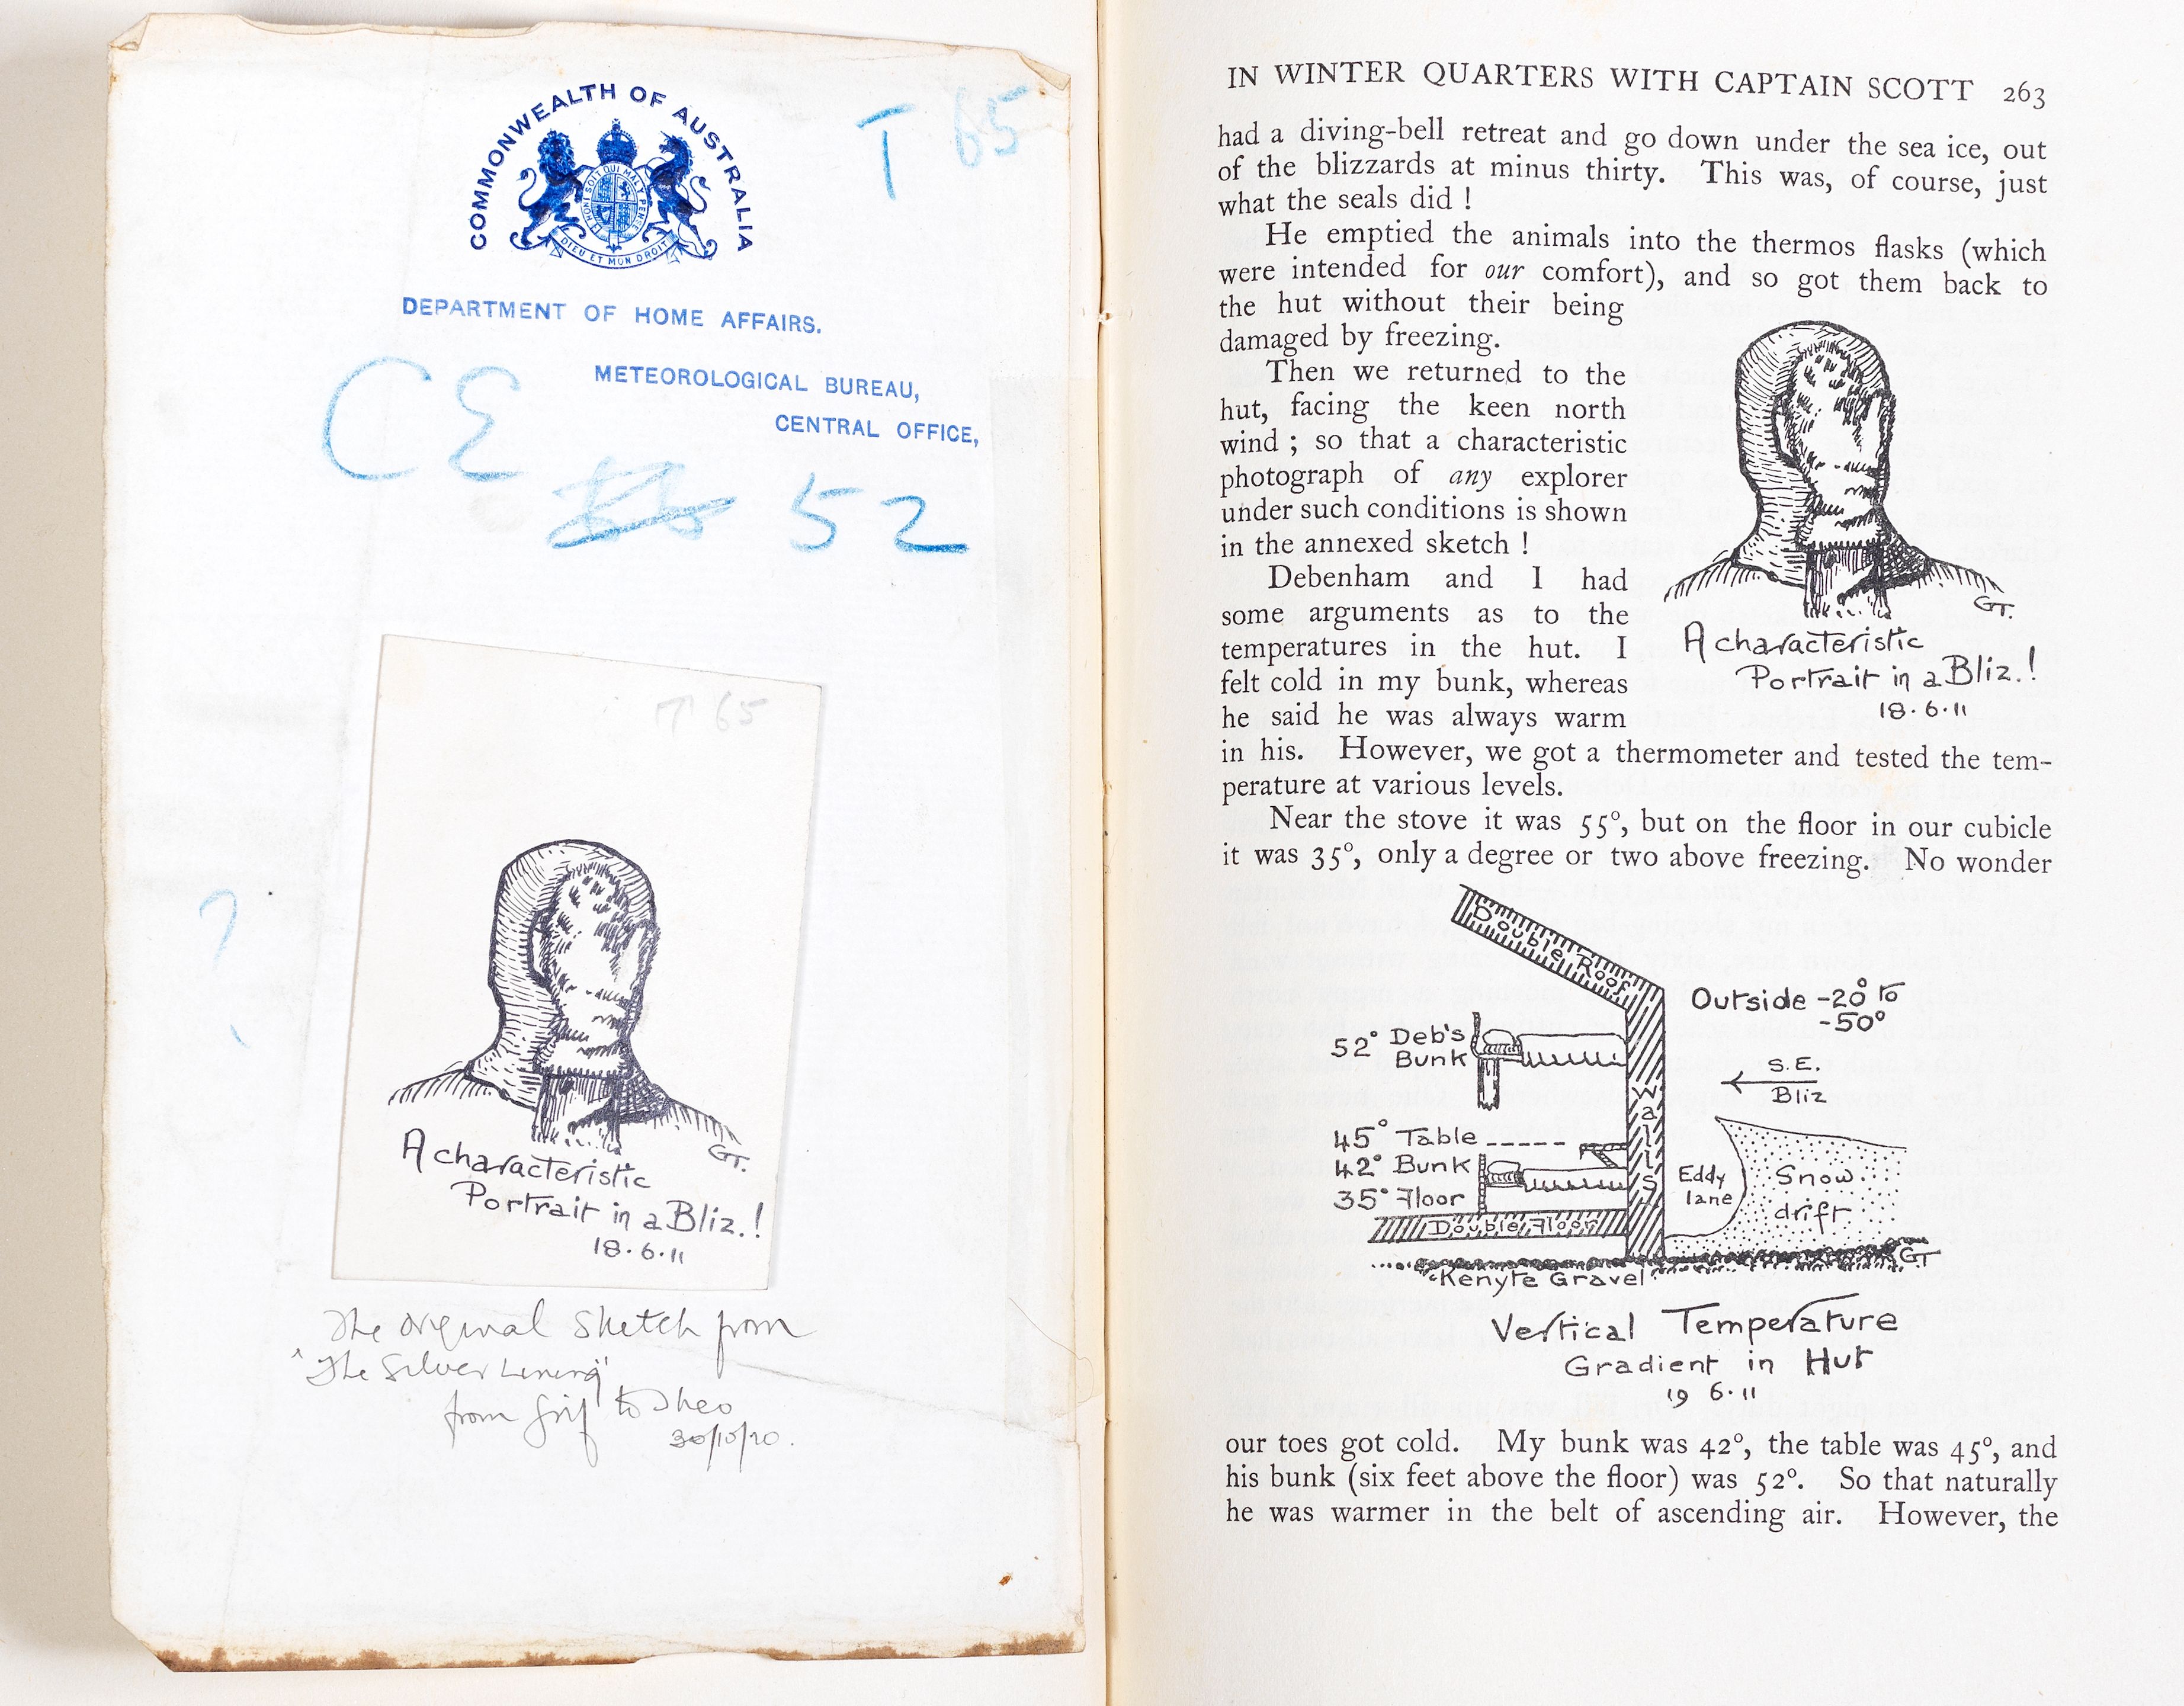 COMMONWEALTH OF AUSTRALIA
HONI SOIT QUI MAL Y PENSE
DIEU ET MON DROIT
T 65
DEPARTMENT OF HOME AFFAIRS.
METEOROLOGICAL BUREAU,
CENTRAL OFFICE,
CE
52
T 65
?
GT.
A characteristic
Portrait in a Bliz.!
18.6.11
The original sketch from
"The Silver Lining"
from Grif to Theo
30/10/20.
IN WINTER QUARTERS WITH CAPTAIN SCOTT 263
had a diving-bell retreat and go down under the sea ice, out
of the blizzards at minus thirty. This was, of course, just
what the seals did !
He emptied the animals into the thermos flasks (which
were intended for our comfort), and so got them back to
the hut without their being
damaged by freezing.
Then we returned to the
hut, facing the keen north
wind ; so that a characteristic
photograph of any explorer
under such conditions is shown
in the annexed sketch !
Debenham and I had
some arguments as to the
temperatures in the hut. I
felt cold in my bunk, whereas
he said he was always warm
GT.
A characteristic
Portrait in a Bliz.!
18.6.11
in his. However, we got a thermometer and tested the tem-
perature at various levels.
Near the stove it was 55°, but on the floor in our cubicle
it was 35°, only a degree or two above freezing. No wonder
Double Roof
Outside -20° to
-50°
52° Deb's
Bunk
Walls
S.E.
Bliz
45° Table
42° Bunk
35° Floor
Eddy
lane
Snow
drift
Double Floor
GT
"Kenyte Gravel"
Vertical Temperature
Gradient in Hut
19 6.11
our toes got cold. My bunk was 42°, the table was 45°, and
his bunk (six feet above the floor) was 52°. So that naturally
he was warmer in the belt of ascending air. However, the